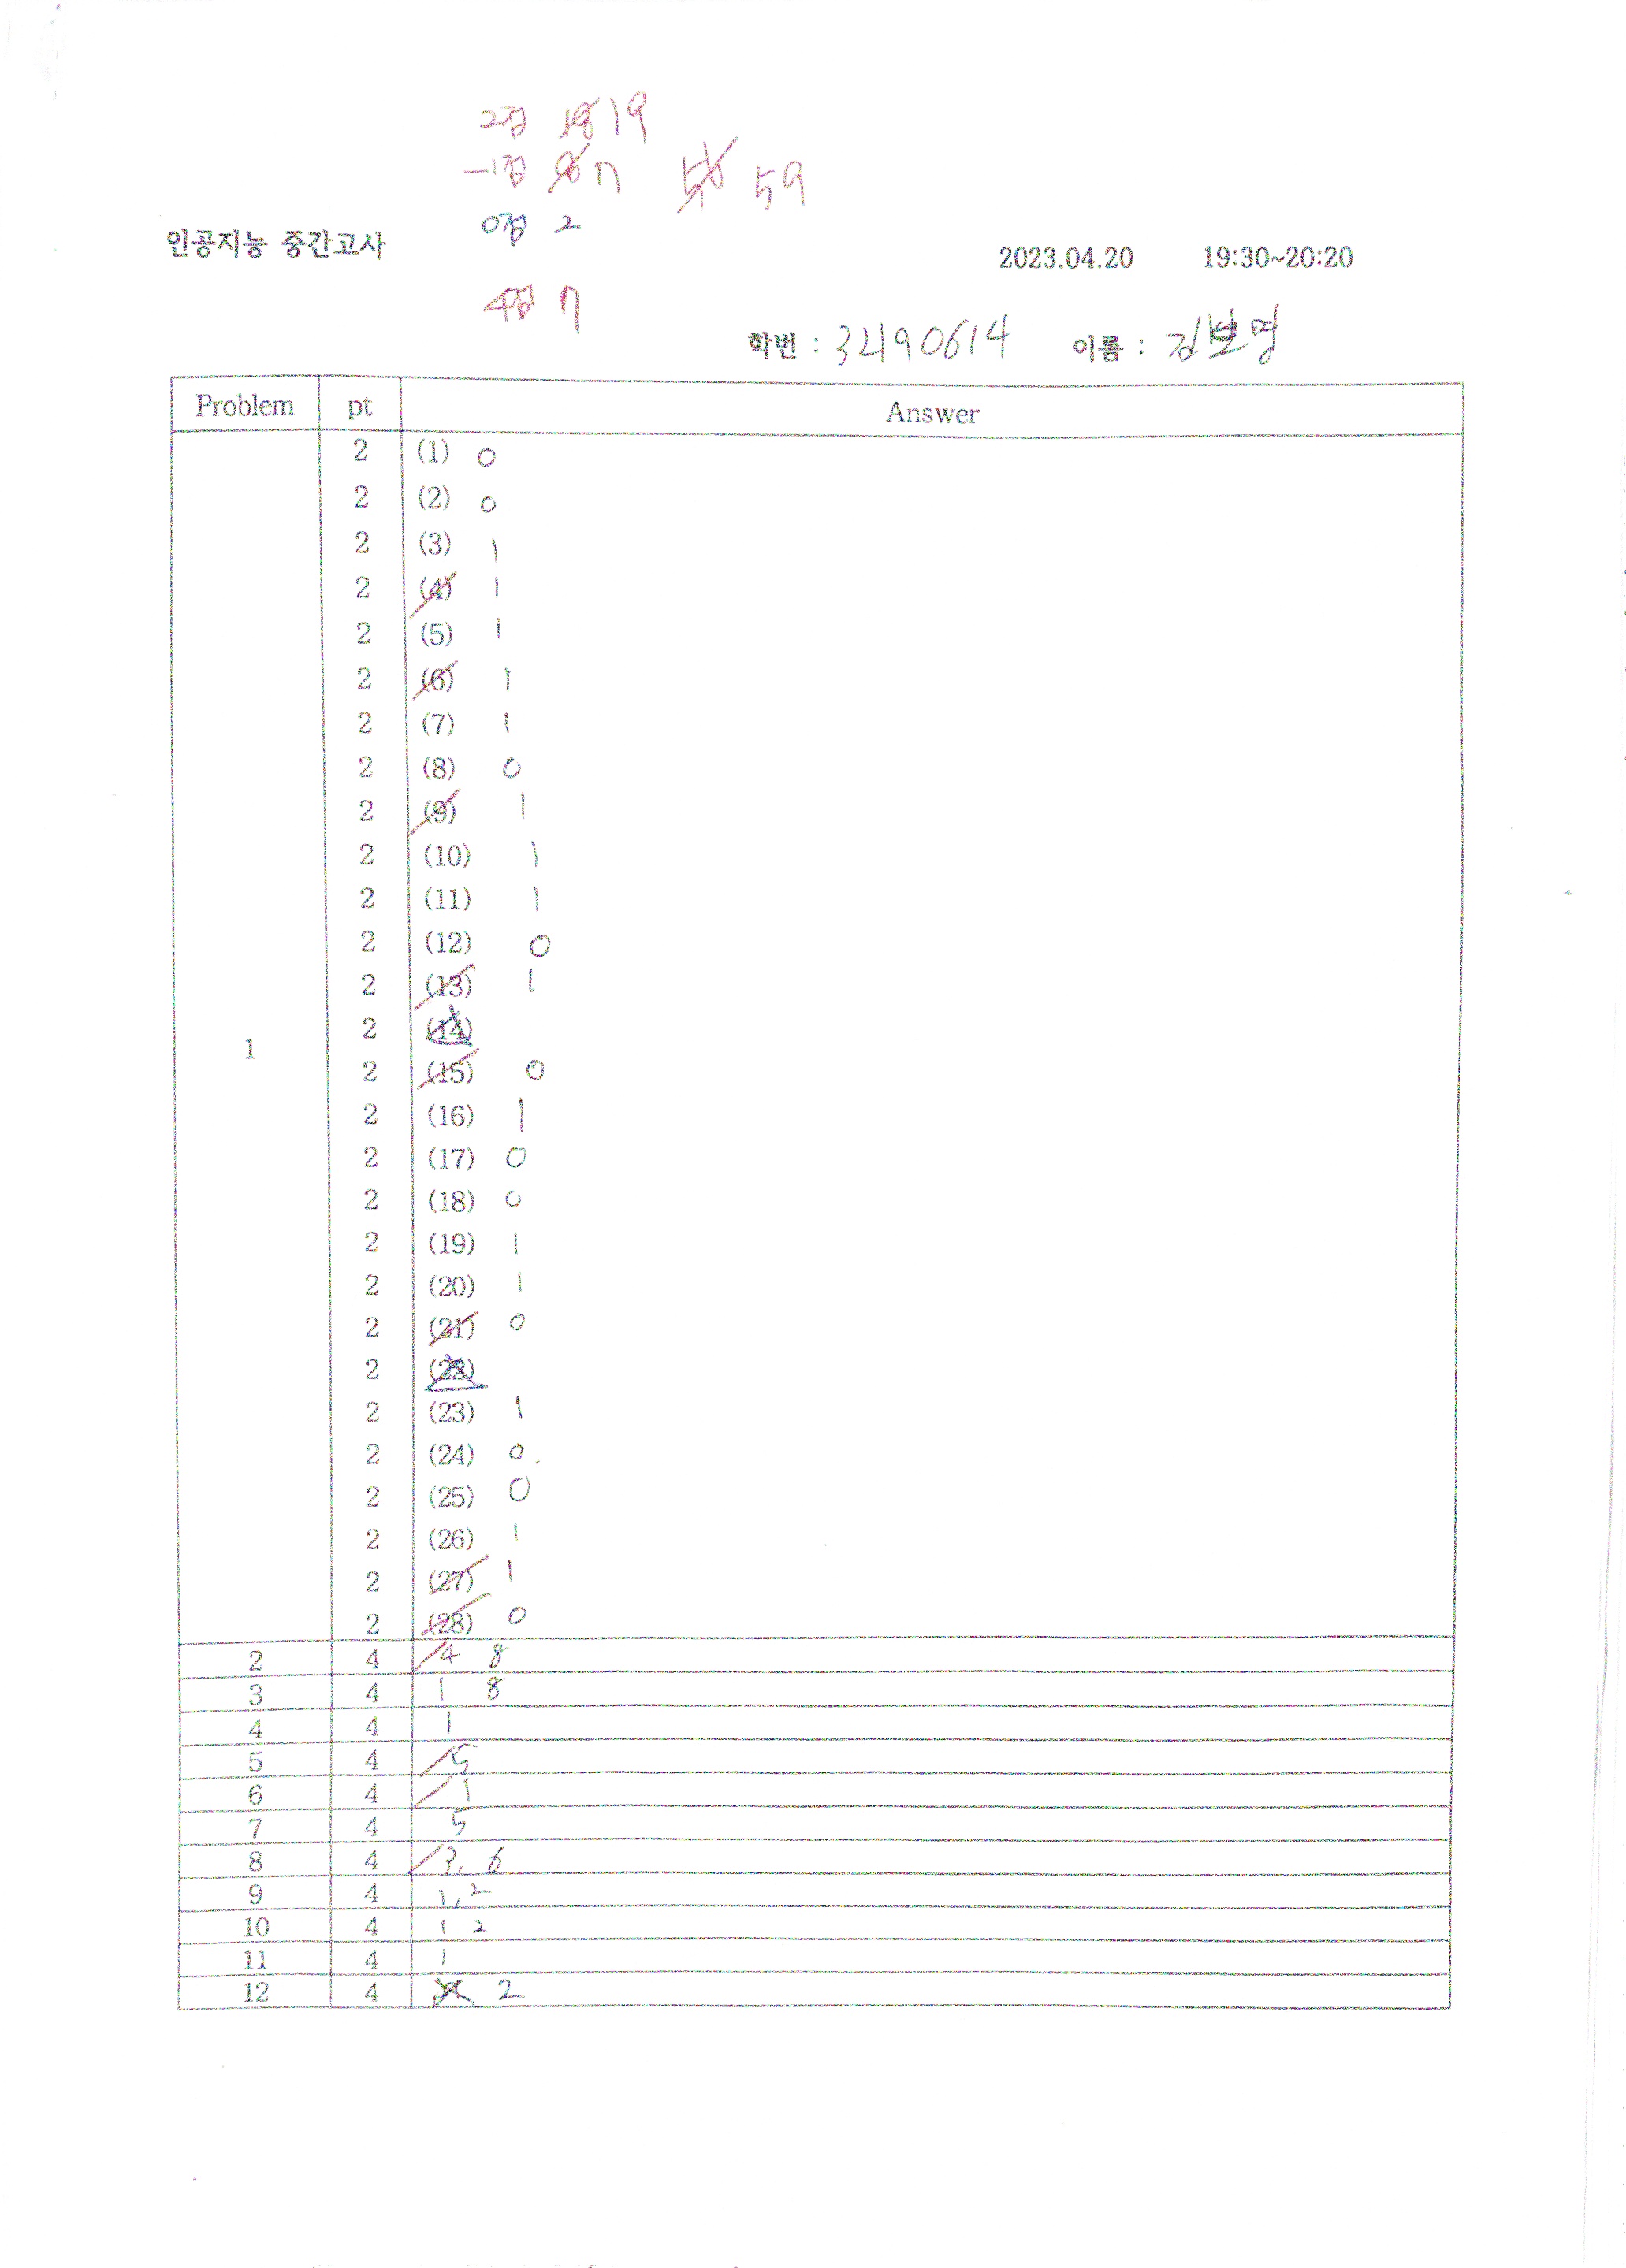 2점 19
-1점 7 59
0점 2
인공지능 중간고사
2023.04.20 19:30~20:20
4점 7
학번 : 32190614 이름 : 김보영
Problem pt Answer
1
2 (1) 0
2 (2) 0
2 (3) 1
2 (4) 1
2 (5) 1
2 (6) 1
2 (7) 1
2 (8) 0
2 (9) 1
2 (10) 1
2 (11) 1
2 (12) 0
2 (13) 1
2 (14)
2 (15) 0
2 (16) 1
2 (17) 0
2 (18) 0
2 (19) 1
2 (20) 1
2 (21) 0
2 (22)
2 (23) 1
2 (24) 0
2 (25) 0
2 (26) 1
2 (27) 1
2 (28) 0
2 4 4 8
3 4 1 8
4 4 1
5 4 5
6 4 1
7 4 5
8 4 6
9 4 1, 2
10 4 1 2
11 4 1
12 4 2